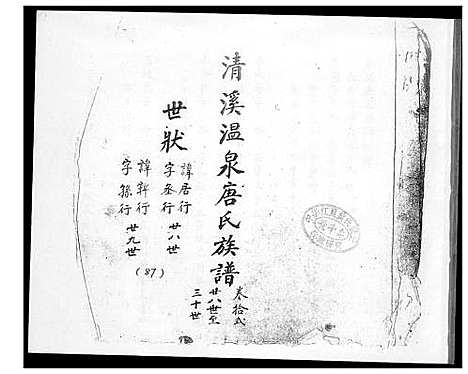 清溪温泉唐氏族譜
卷拾弍
廿八世至
三十世
世狀
諱居行
字丞行
廿八世
諱斡行
字孫行
廿九世
(87)